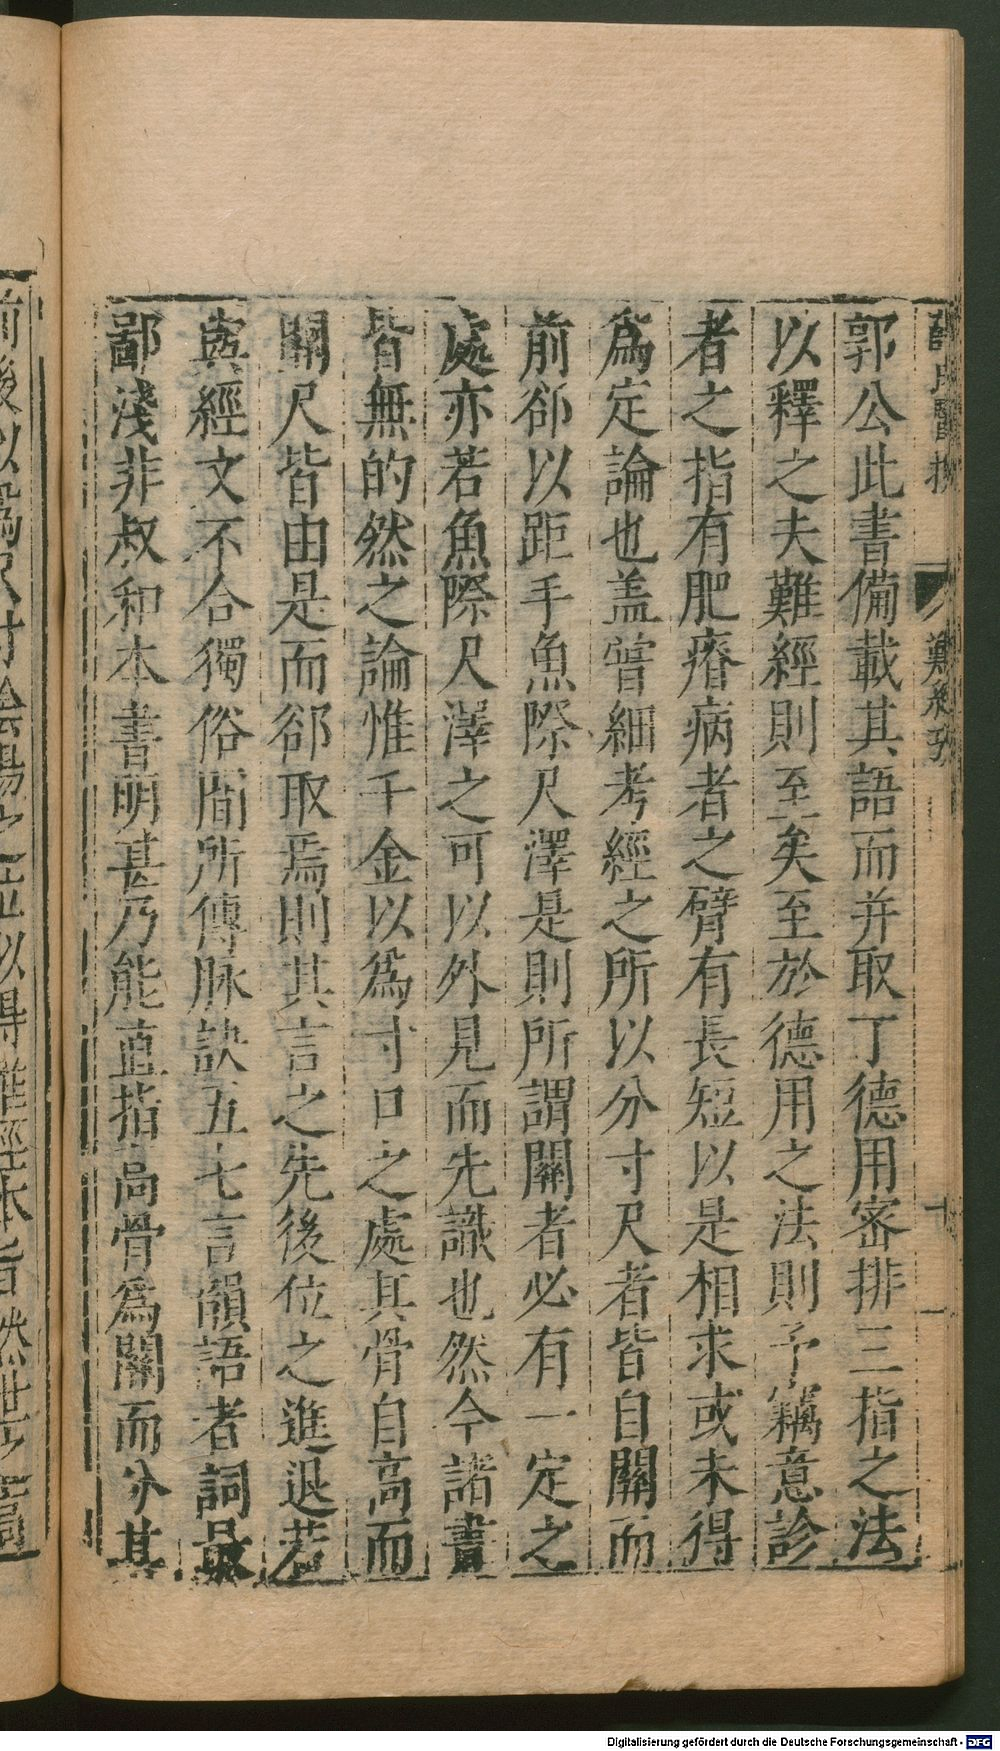 郭公此書備載其語而并取丁德用密排三指之法
以釋之夫難經則至矣至於德用之法則予竊意診
者之指有肥瘠病者之臂有長短以是相求或未得
為定論也盖嘗細考經之所以分寸尺者皆自關而
前郤以距手魚際尺澤是則所謂關者必有一定之
處亦若魚際尺澤之可以外見而先識也然今諸書
皆無的然之論惟千金以為寸口之處其骨自高而
關尺皆由是而郤取焉則其言之先後位之進退若
與經文不合獨俗間所傳脉訣五七言韻語者詞最
鄙淺非叔和本書明甚乃能直指高骨為關而分其
Digitalisierung gefördert durch die Deutsche Forschungsgemeinschaft - DFG